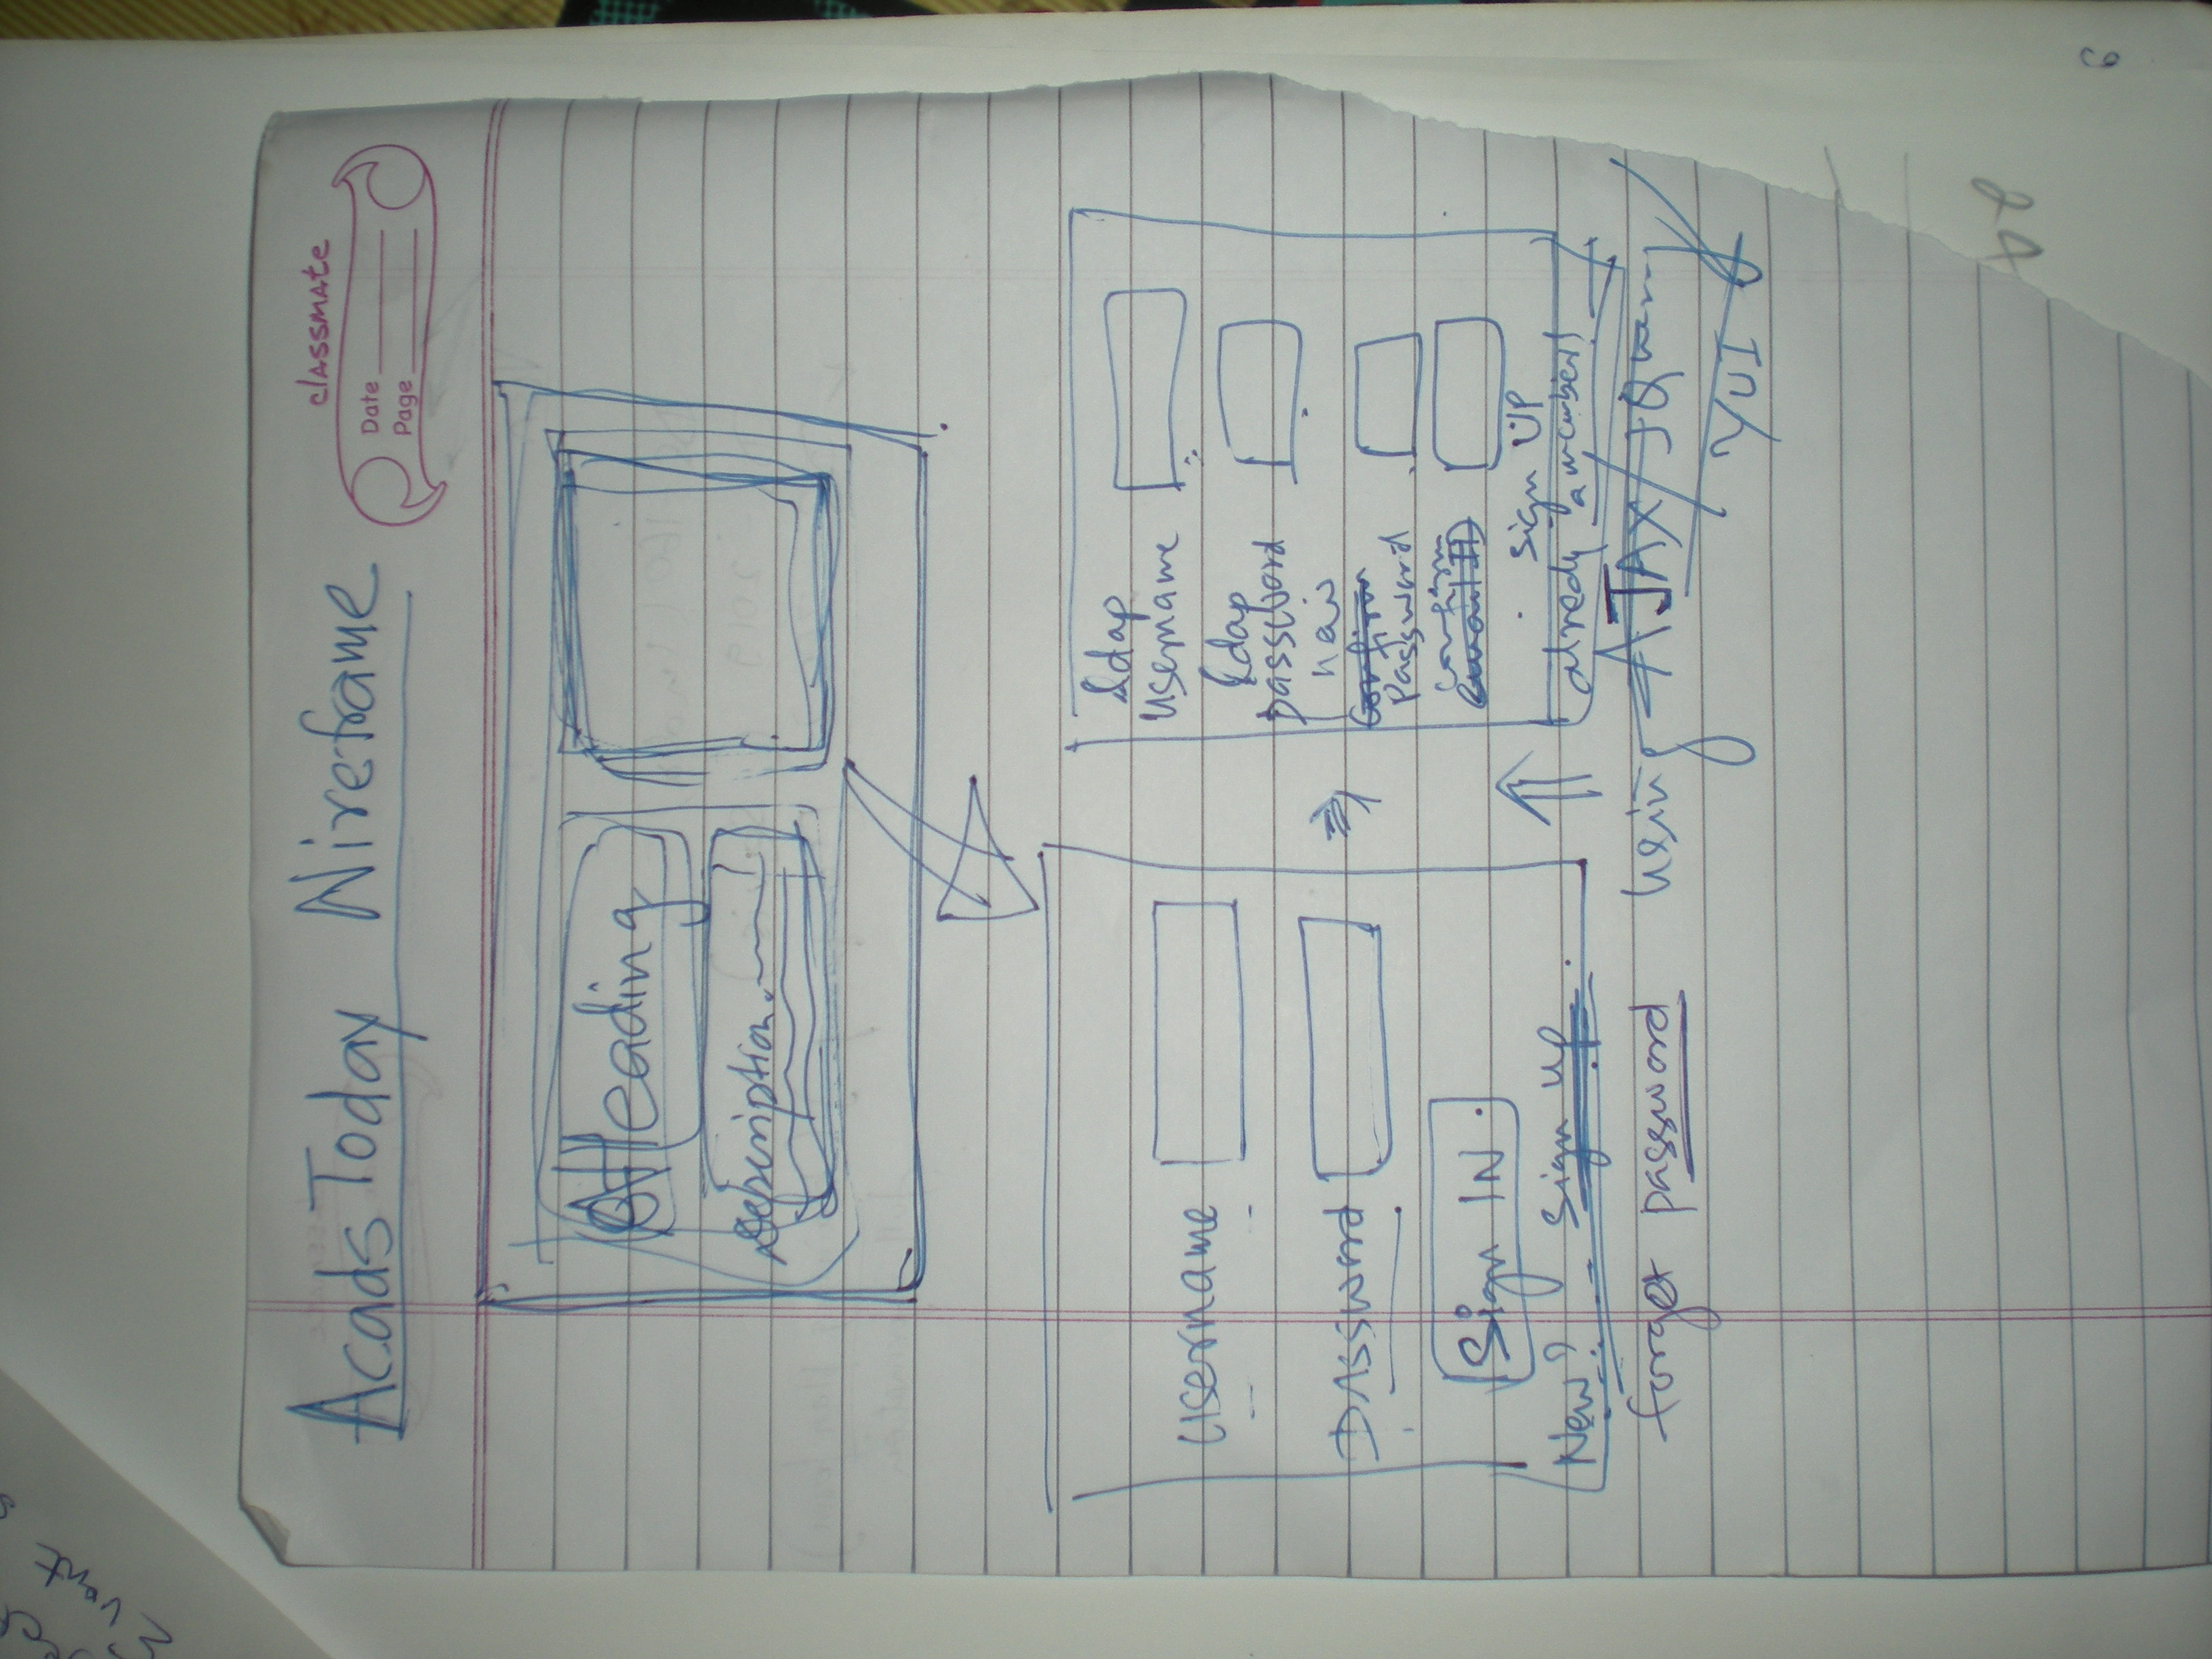 classmate
Date
Page
Acads Today Wireframe
Heading
Description
Username
Password
Sign IN
New? Sign up
forget password
ldap
username
ldap
password
new
Confirm
Password
confirm
Sign UP
already a member!
using AJAX / JQuery
YUI
want